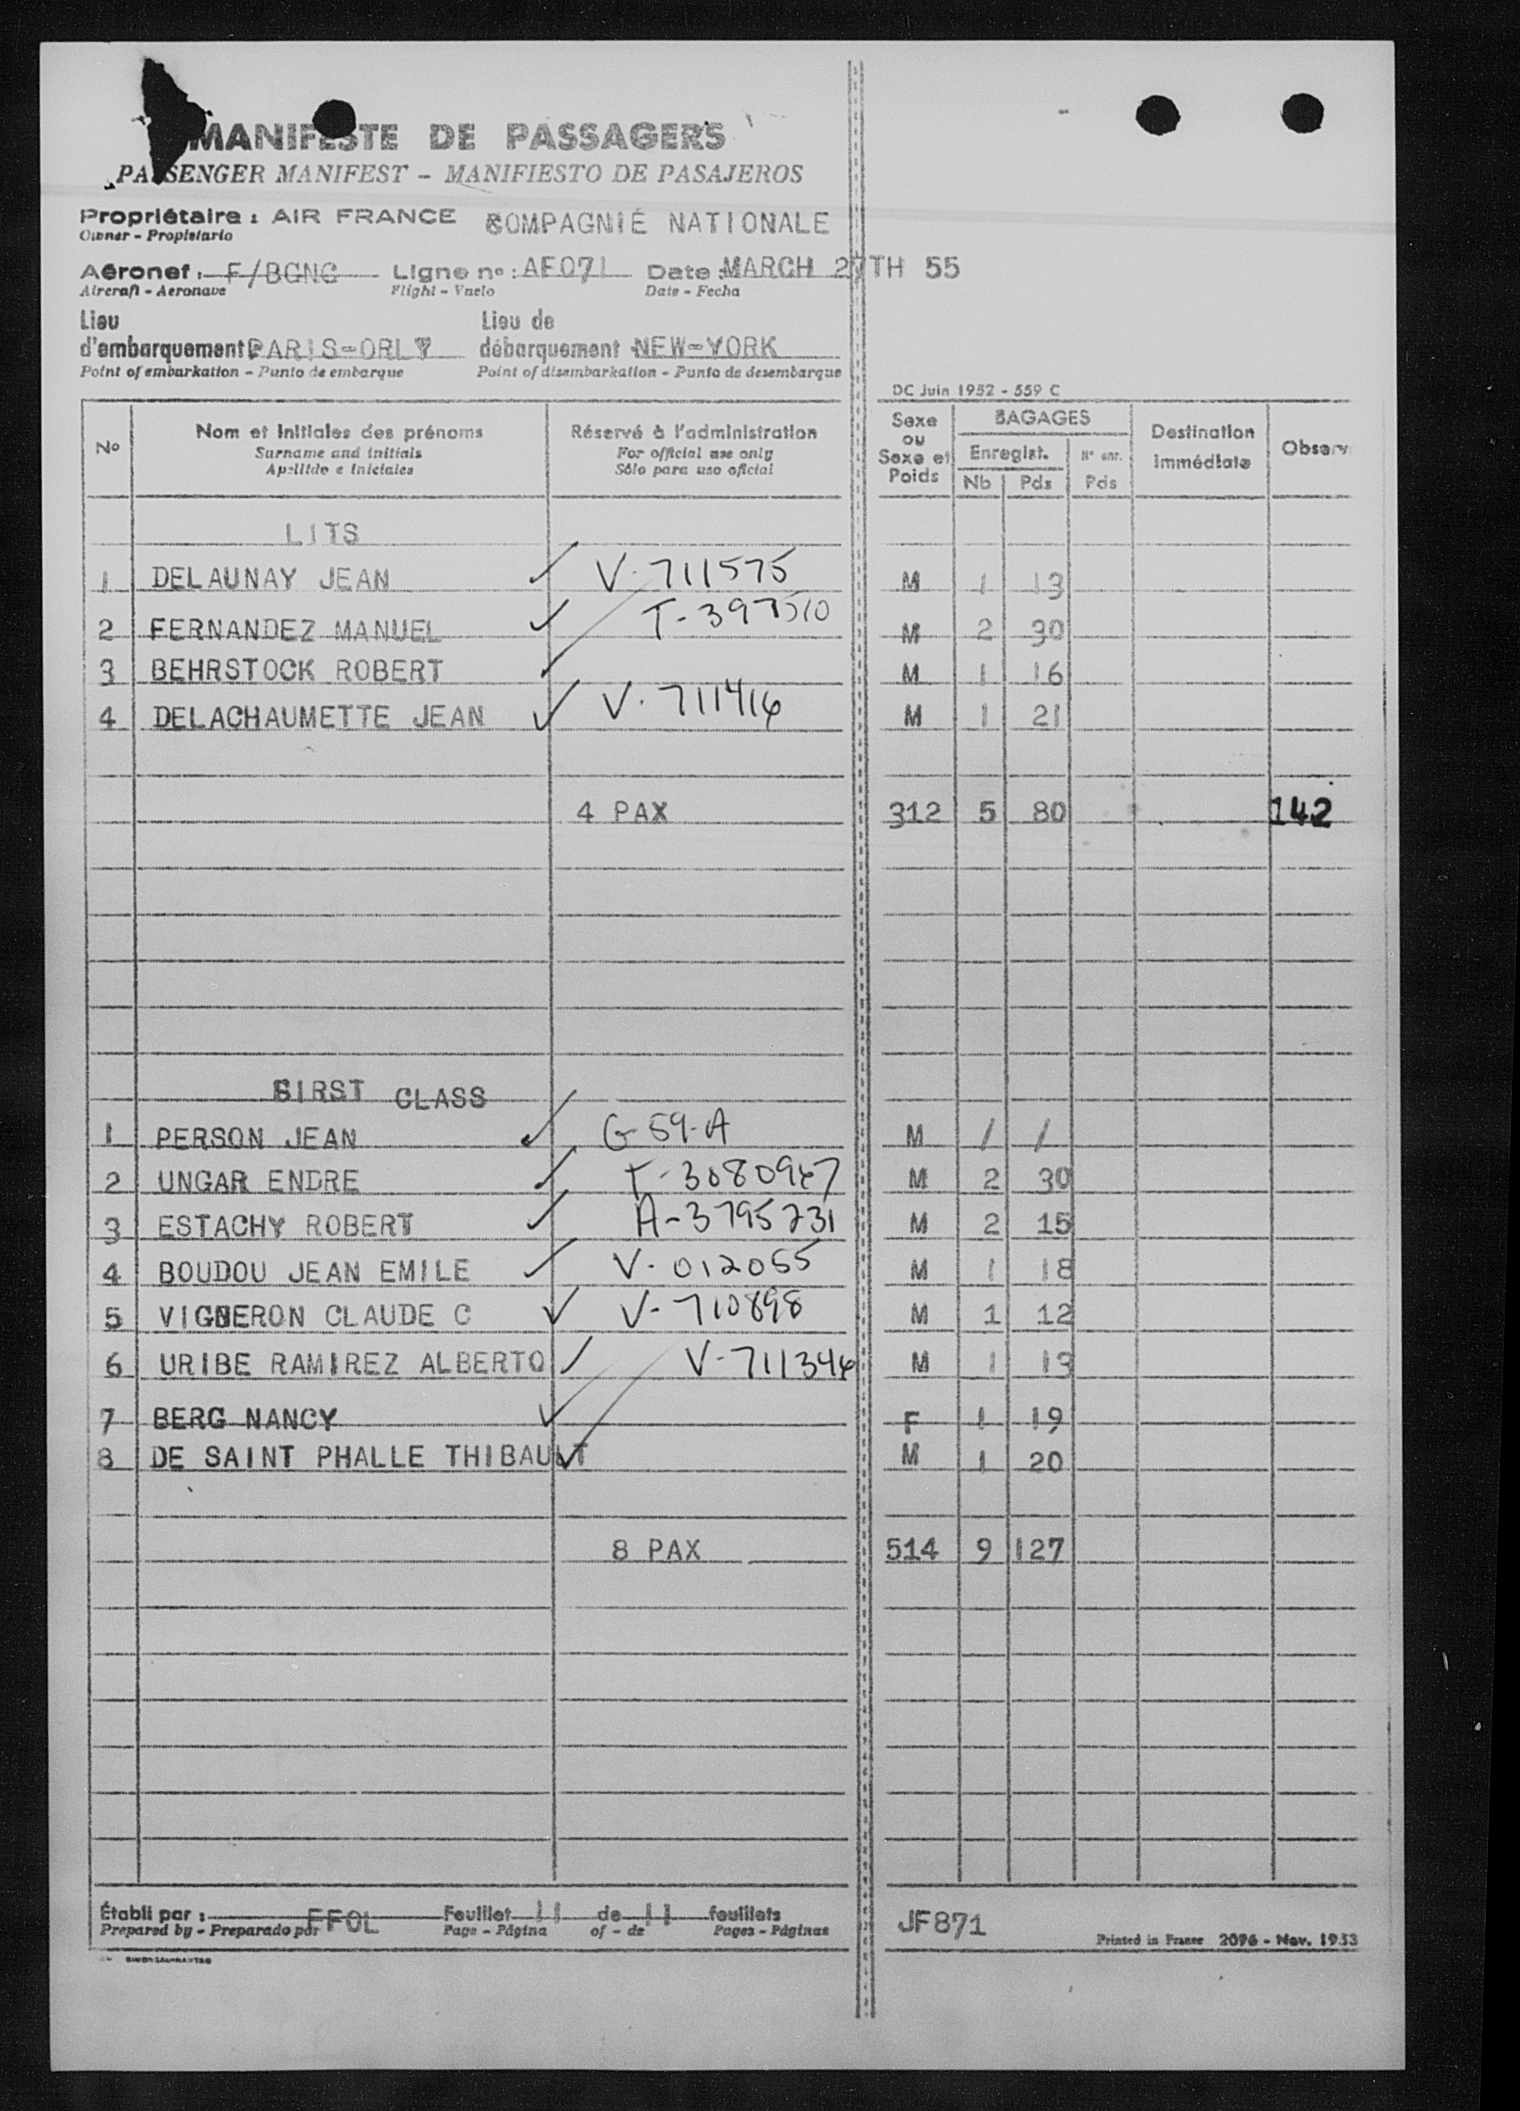 MANIFESTE DE PASSAGERS
PASSENGER MANIFEST - MANIFIESTO DE PASAJEROS
Propriétaire : AIR FRANCE COMPAGNIE NATIONALE
Owner - Propietario
Aéronef : F/BGNG Ligne no : AF071 Date : MARCH 27TH 55
Aircraft - Aeronave Flight - Vuelo Date - Fecha
Lieu d'embarquement PARIS-ORLY Lieu de débarquement NEW-YORK
Point of embarkation - Punto de embarque Point of disembarkation - Punto de desembarque
DC Juin 1952 - 559 C
No Nom et initiales des prénoms Réservé à l'administration Sexe ou Sexe et Poids BAGAGES Destination immédiate Observ
Surname and initials For official use only Enregist. N° enr.
Apellido e iniciales Sólo para uso oficial Nb Pds Pds
LITS
1 DELAUNAY JEAN V-711575 M 1 13
2 FERNANDEZ MANUEL T-397510 M 2 30
3 BEHRSTOCK ROBERT M 1 16
4 DELACHAUMETTE JEAN V-711416 M 1 21
4 PAX 312 5 80 142
FIRST CLASS
1 PERSON JEAN G-59-A M / /
2 UNGAR ENDRE T-3080947 M 2 30
3 ESTACHY ROBERT A-3795231 M 2 15
4 BOUDOU JEAN EMILE V-012055 M 1 18
5 VIGNERON CLAUDE C V-710898 M 1 12
6 URIBE RAMIREZ ALBERTO V-711344 M 1 13
7 BERG NANCY F 1 19
8 DE SAINT PHALLE THIBAULT M 1 20
8 PAX 514 9 127
Établi par : FFOL Feuillet 11 de 11 feuillets JF871
Prepared by - Preparado por Page - Página of - de Pages - Páginas Printed in France 2096 - Nov. 1953